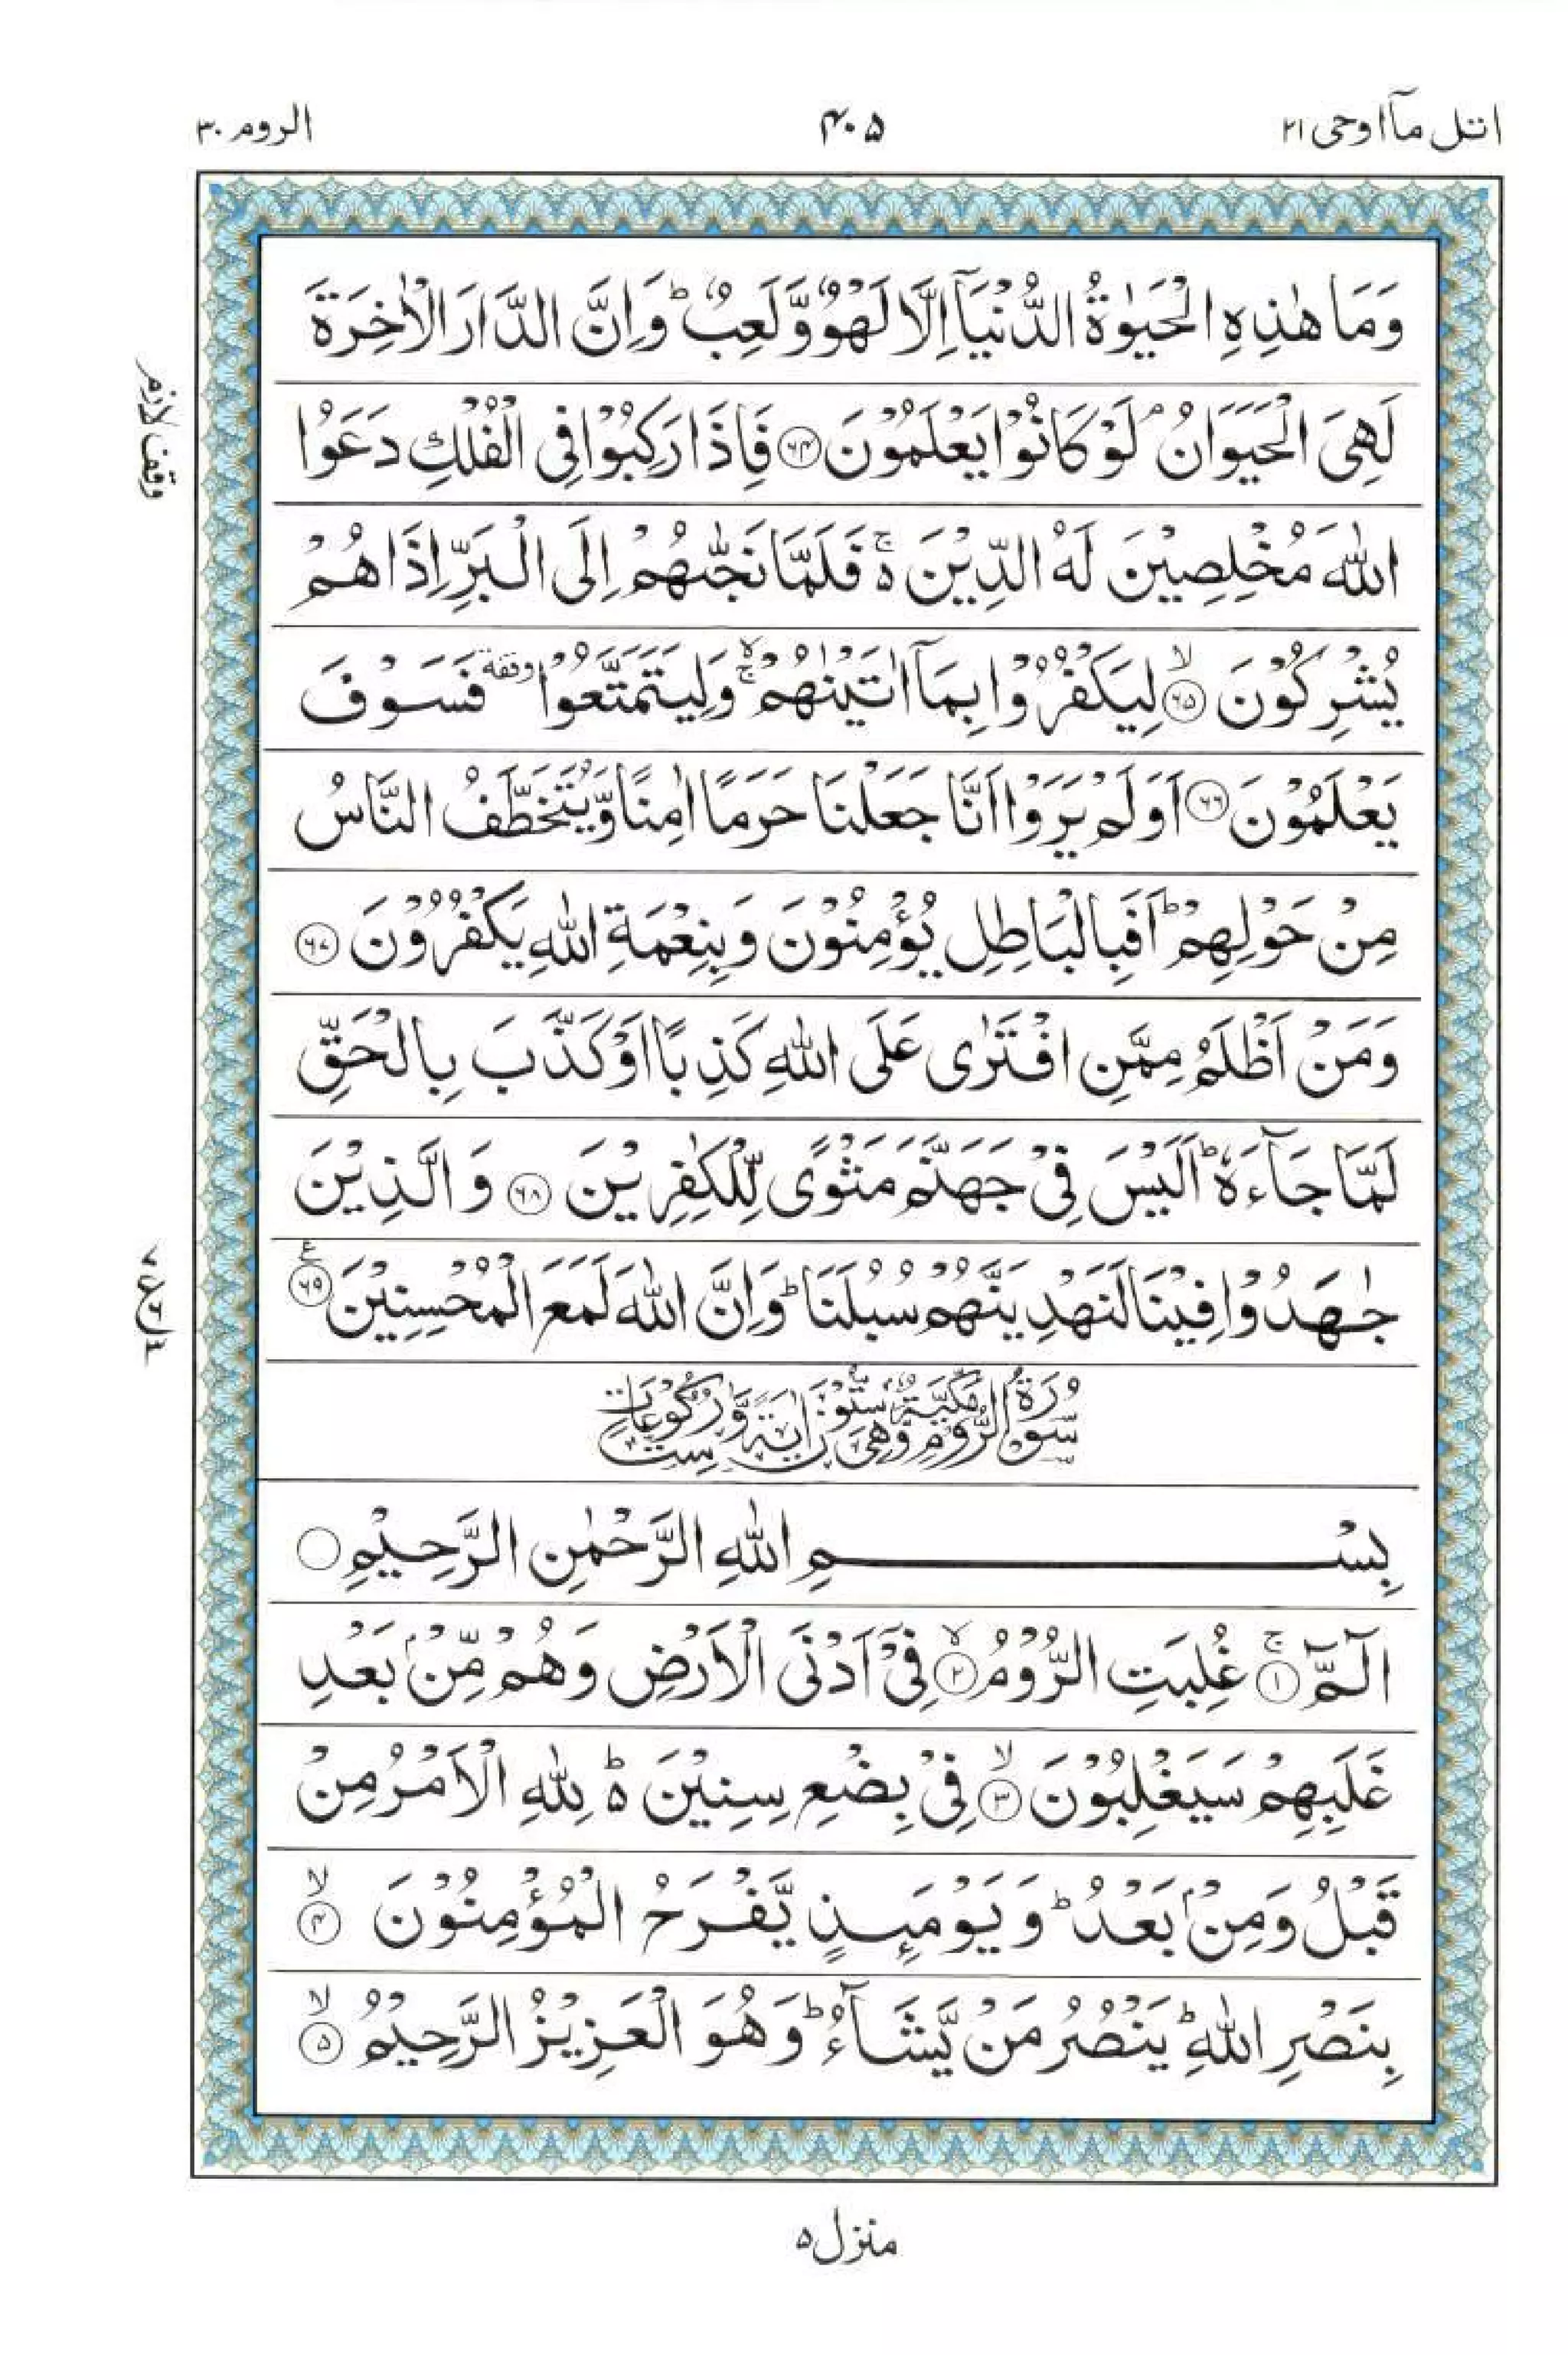 اتل مآ اوحی ۲۱
۴۰۵
الروم ۳۰
وَمَا هٰذِهِ الْحَيٰوةُ الدُّنْيَآ اِلَّا لَهْوٌ وَّلَعِبٌ ؕ وَاِنَّ الدَّارَ الْاٰخِرَةَ
لَهِىَ الْحَيَوَانُ ۘ لَوْ كَانُوْا يَعْلَمُوْنَ ﴿۶۴﴾ فَاِذَا رَكِبُوْا فِى الْفُلْكِ دَعَوُا
وقف لازم
اللّٰهَ مُخْلِصِيْنَ لَهُ الدِّيْنَ ۚ۬ فَلَمَّا نَجّٰىهُمْ اِلَى الْبَرِّ اِذَا هُمْ
يُشْرِكُوْنَ ﴿۶۵﴾ۙ لِيَكْفُرُوْا بِمَآ اٰتَيْنٰهُمْ ۚۙ وَلِيَتَمَتَّعُوْا وقفة فَسَوْفَ
يَعْلَمُوْنَ ﴿۶۶﴾ اَوَلَمْ يَرَوْا اَنَّا جَعَلْنَا حَرَمًا اٰمِنًا وَّيُتَخَطَّفُ النَّاسُ
مِنْ حَوْلِهِمْ ؕ اَفَبِالْبَاطِلِ يُؤْمِنُوْنَ وَبِنِعْمَةِ اللّٰهِ يَكْفُرُوْنَ ﴿۶۷﴾
وَمَنْ اَظْلَمُ مِمَّنِ افْتَرٰى عَلَى اللّٰهِ كَذِبًا اَوْ كَذَّبَ بِالْحَقِّ
لَمَّا جَآءَهٗ ؕ اَلَيْسَ فِىْ جَهَنَّمَ مَثْوًى لِّلْكٰفِرِيْنَ ﴿۶۸﴾ وَالَّذِيْنَ
جٰهَدُوْا فِيْنَا لَنَهْدِيَنَّهُمْ سُبُلَنَا ؕ وَاِنَّ اللّٰهَ لَمَعَ الْمُحْسِنِيْنَ ﴿۶۹﴾ ع
سُوْرَةُ الرُّوْمِ مَكِّيَّةٌ وَّهِىَ سِتُّوْنَ اٰيَةً وَّسِتُّ رُكُوْعَاتٍ
بِسْمِ اللّٰهِ الرَّحْمٰنِ الرَّحِيْمِ ○
الٓمّٓ ﴿۱﴾ۚ غُلِبَتِ الرُّوْمُ ﴿۲﴾ۙ فِىْٓ اَدْنَى الْاَرْضِ وَهُمْ مِّنْۢ بَعْدِ
غَلَبِهِمْ سَيَغْلِبُوْنَ ﴿۳﴾ۙ فِىْ بِضْعِ سِنِيْنَ ۬ؕ لِلّٰهِ الْاَمْرُ مِنْ
قَبْلُ وَمِنْۢ بَعْدُ ؕ وَيَوْمَىِٕذٍ يَّفْرَحُ الْمُؤْمِنُوْنَ ﴿۴﴾ۙ
بِنَصْرِ اللّٰهِ ؕ يَنْصُرُ مَنْ يَّشَآءُ ؕ وَهُوَ الْعَزِيْزُ الرَّحِيْمُ ﴿۵﴾ۙ
منزل ۵